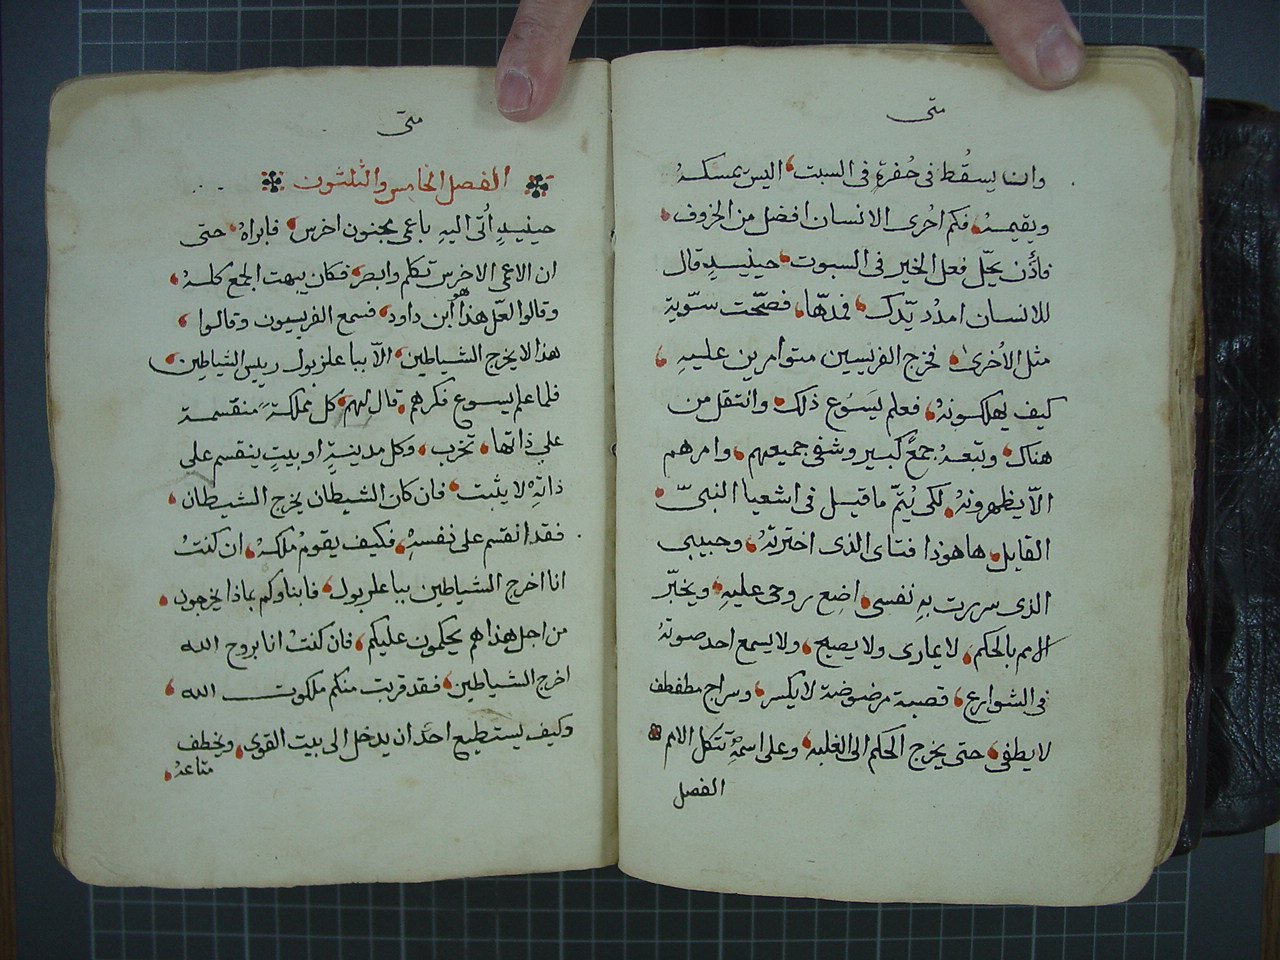 متى
وان يسقُط فى حُفرةٍ فى السبت، اليس يمسكهُ
ويقيمهُ، فكم احُرى الانسان افضل من الخروف،
فاذًن يحّل فعل الخير فى السبوت، حينيدٍ قال
للانسان امدُد يّدك، فمدّها، فصّحت سَوّية
مثل الأخرى، فخرج الفريسين متوامرين عليهِ،
كيف يهلكونهُ، فعلم يسَوع ذلك، وانتقل من
هناك، وتبعهُ جمعً كبير وشفى جميعهم، وامرهم
الّا يظهرونهُ، لكى يُتمّ ماقيل فى اشعيا النبىّ،
القايل، هاهوذا فتاى الذى اخترتهُ، وحبيبى
الذى سررت بهِ نفسى، اضِع روحى عليهِ، ويخبّر
الامم بالحكم، لايمارى ولا يصيح، ولا يسمع احد صوتهُ
فى الشوارع، قصبة مرضوضة لايكسر، وسراج مطفطف
لا يطفى، حتى يخرج الحكم الى الغلبه، وعلى اسمهِ تتكل الامم
الفصل
متى
الفصل الخامس والثلثون
حينيدٍ اُتى اليهِ باعمى مجنون اخرس، فابراهُ، حتى
ان الاعمى الاخرس تكلم وابصر، فكان يبهت الجمع كلهُ،
وقالوا لعّل هذا هو ابن داود، فسمع الفريسيون وقالوا،
هذا لا يخرج الشياطين، الّا ببا علزبول رييس الشياطين،
فلما علم يسوع فكرهم، قال لهم، كل مملكةٍ منقسمة
على ذاتها، تخرب، وكل مدينةٍ او بيتٍ ينقسم على
ذاتهِ لا يثبت، فان كان الشيطان يخرج الشيطان،
فقد انقسم على نفسهِ، فكيف يقومُ ملكهُ، ان كنتُ
انا اخرج الشياطين ببا علزبول، فابناوكم بماذا يخرجون،
من اجل هذا هم يحكمون عليكم، فان كنتُ انا بروح الله
اخرج الشياطين، فقد قربت منكم ملكوت الله،
وكيف يستطيع احدً ان يدخل الى بيت القوى، ويخطف
متاعهُ،